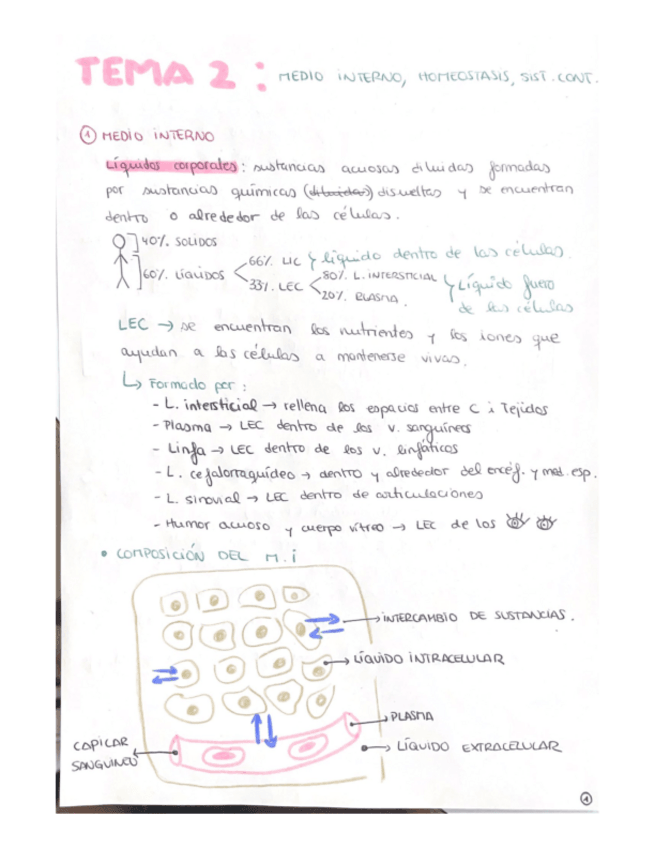 TEMA 2: MEDIO INTERNO, HOMEOSTASIS, SIST. CONT.
① MEDIO INTERNO
Líquidos corporales: sustancias acuosas diluidas formadas
por sustancias químicas (diluidas) disueltas y se encuentran
dentro o alrededor de las células.
40% SOLIDOS
60% LÍQUIDOS
66% LIC } líquido dentro de las células.
33% LEC
80% L. INTERSTICIAL
20% PLASMA.
} Líquido fuera
de las células
LEC → se encuentran los nutrientes y los iones que
ayudan a las células a mantenerse vivas.
↳ Formado por:
- L. intersticial → rellena los espacios entre C i Tejidos
- Plasma → LEC dentro de los v. sanguíneos
- Linfa → LEC dentro de los v. linfáticos
- L. cefalorraquídeo → dentro y alrededor del encéf. y med. esp.
- L. sinovial → LEC dentro de articulaciones
- Humor acuoso y cuerpo vítreo → LEC de los
• COMPOSICIÓN DEL M.i
INTERCAMBIO DE SUSTANCIAS.
LÍQUIDO INTRACELULAR
PLASMA
CAPILAR
SANGUINEO
LÍQUIDO EXTRACELULAR
1